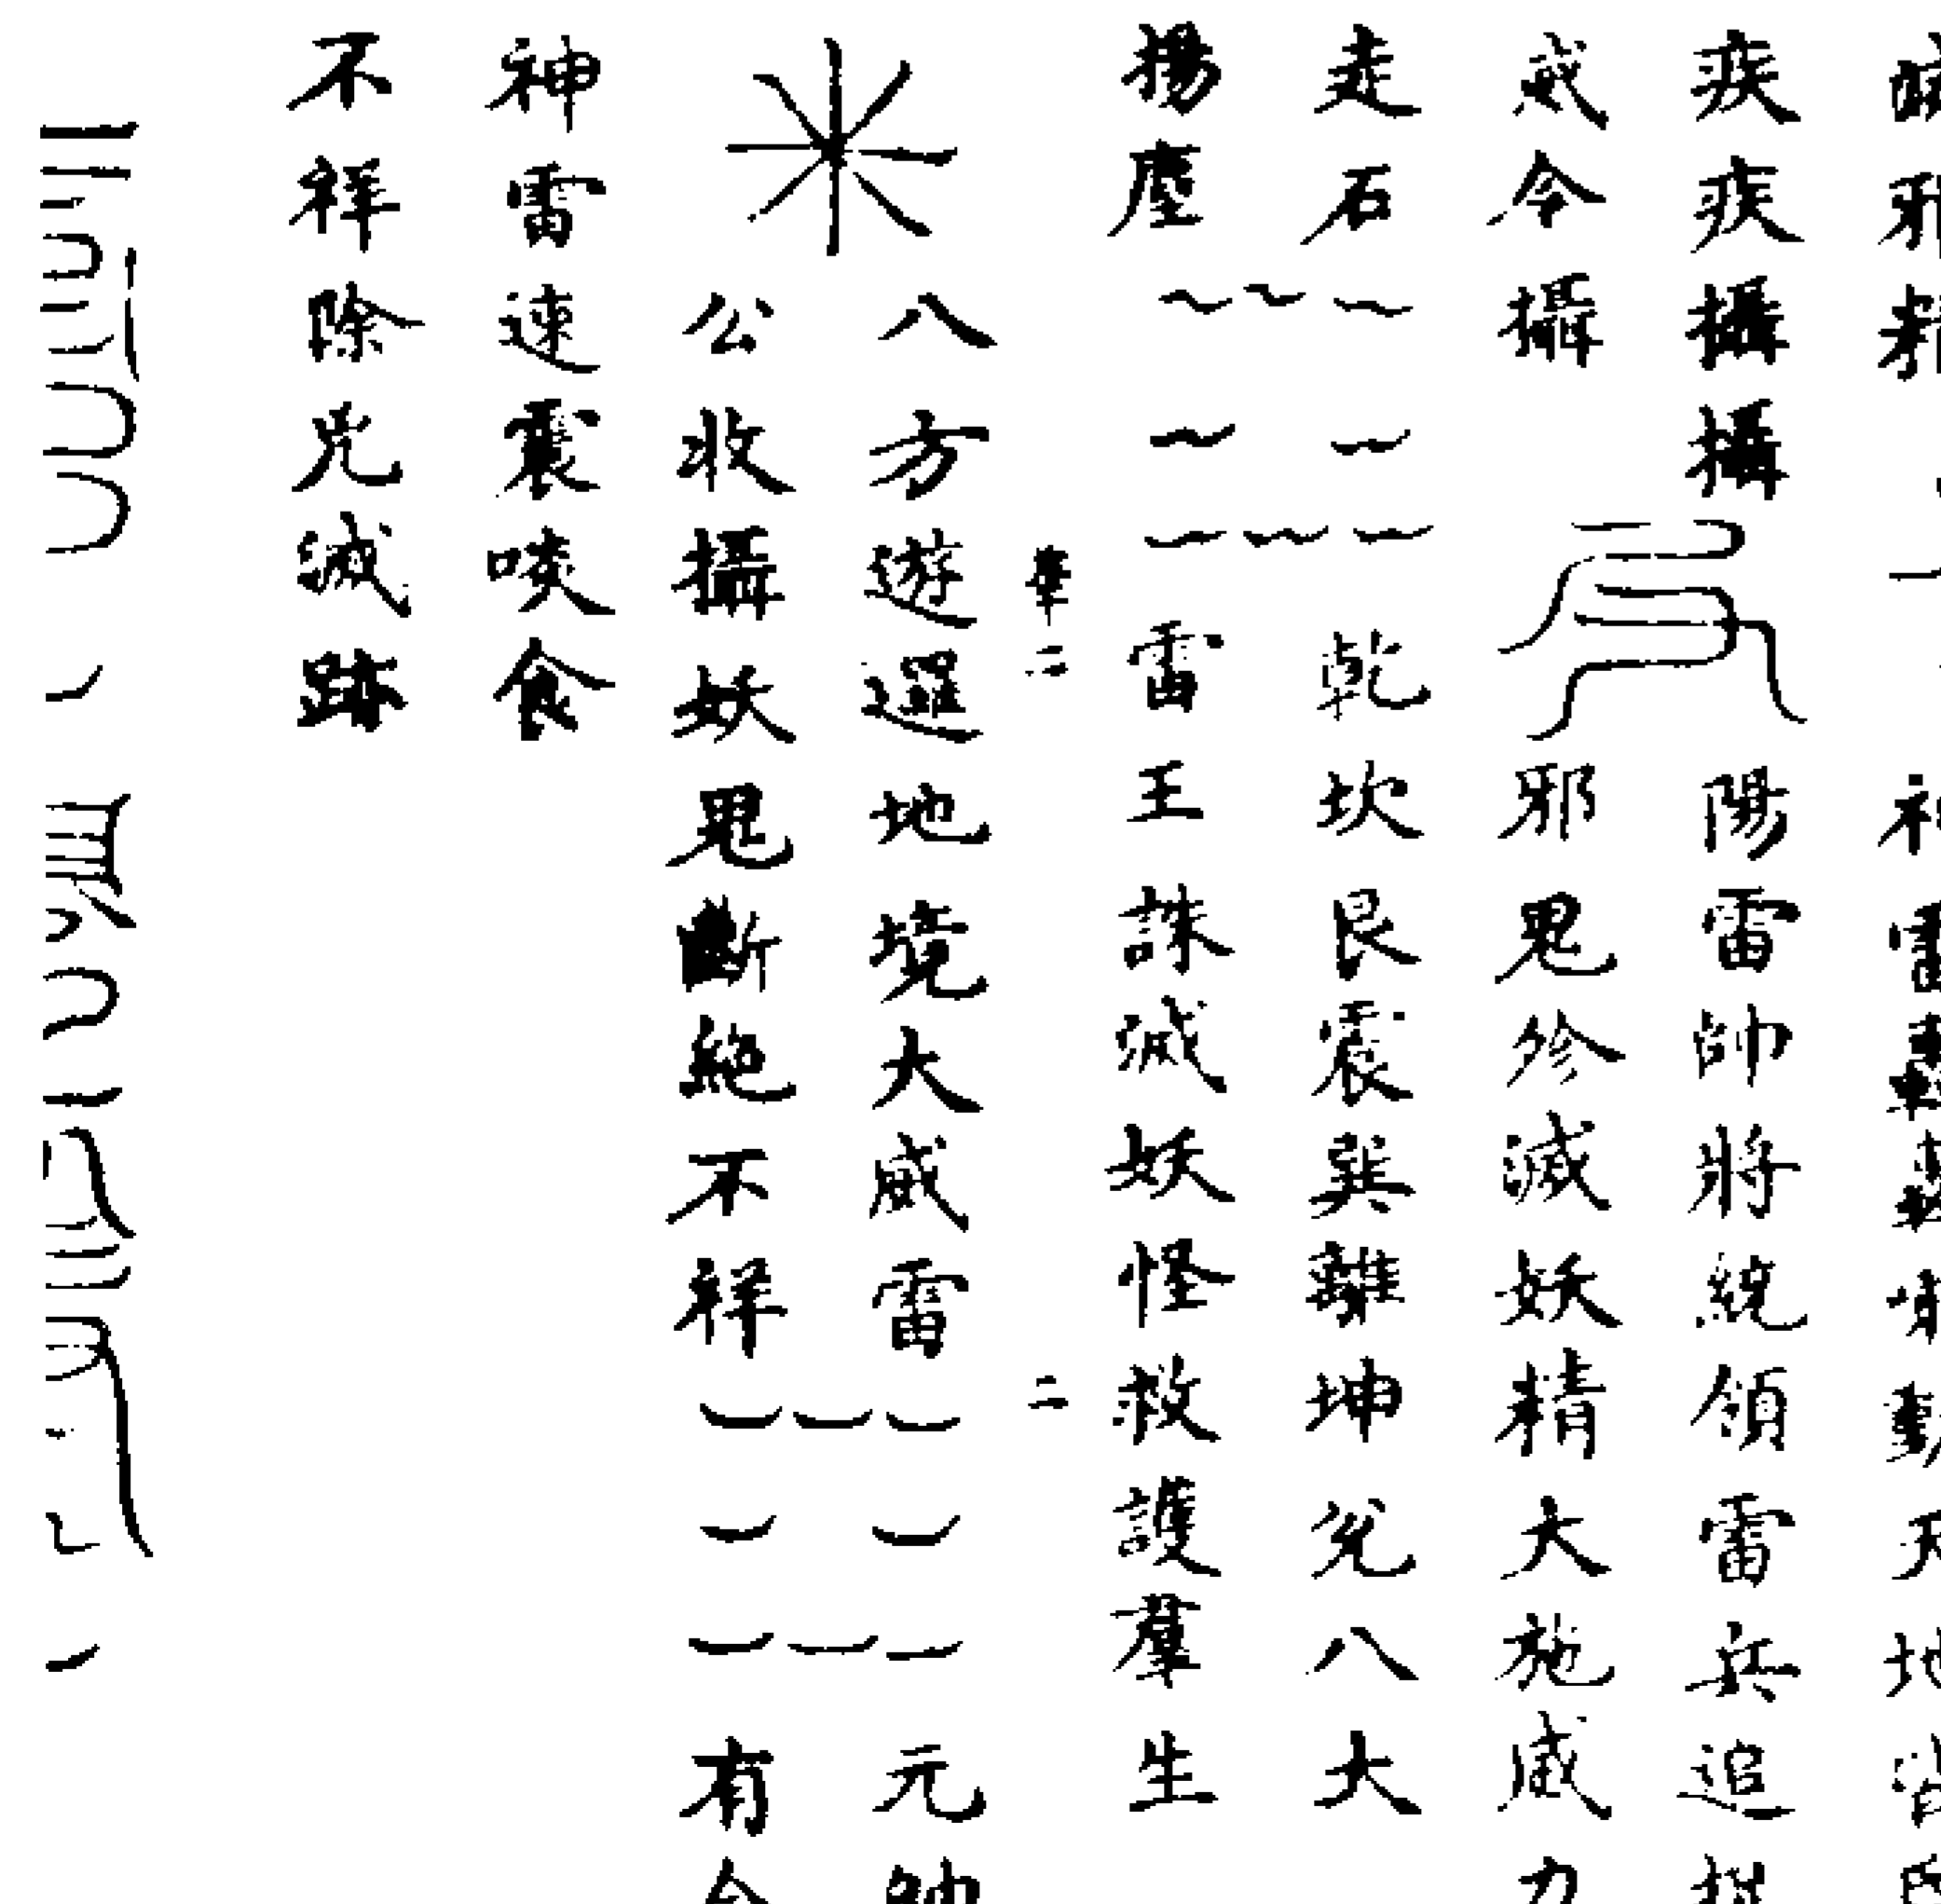 邪精
疾疾攝攝
陽雷帥將統領雷兵追攝
威令攝
邪鬼殄滅妖精大施威力
走石
乾坎艮震巽離坤兌八大
揚塵
雷王誅滅妖怪救護羣生
二
八方遊邏地境大威雷元帥
公收攝妖鬼斷絕不祥
有令
神雷速震啖食
不祥除兇滅跡